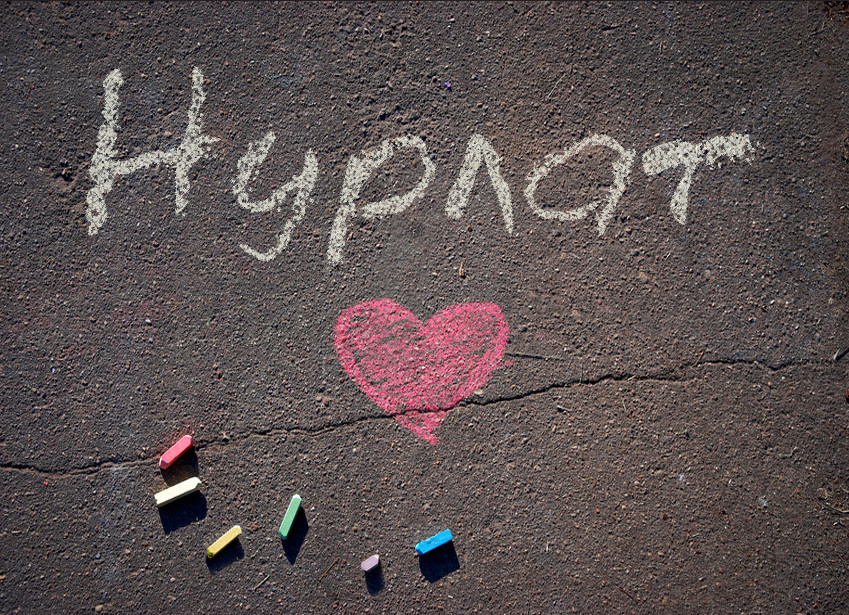 Нурлат